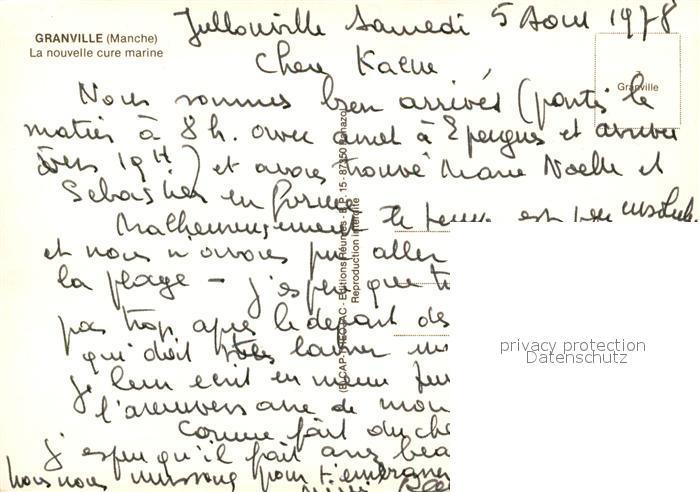 GRANVILLE (Manche)
La nouvelle cure marine
Jullouville Samedi 5 Aout 1978
Granville
Chere
Nous sommes bien arrivés (partis le
matin à 8h. avec arret à Epougny et arrivée
vers 19H) et avons trouvé Marie Noelle et
Sebastien en forme
Malheureusement le temps est peu
et nous n'avons pu aller
la plage - J'espere que tu
pas trop apres le depart des
qui doit laisser un
Je leur ecrit en meme
l'anniversaire de mon
Comme fait du
J'espere qu'il fait assez beau
nous nous unissons pour t'embrasser
(E) CAP-THEOJAC - Editions Réunies - B.P. 15 - 87350 Panazol
Reproduction interdite
privacy protection
Datenschutz